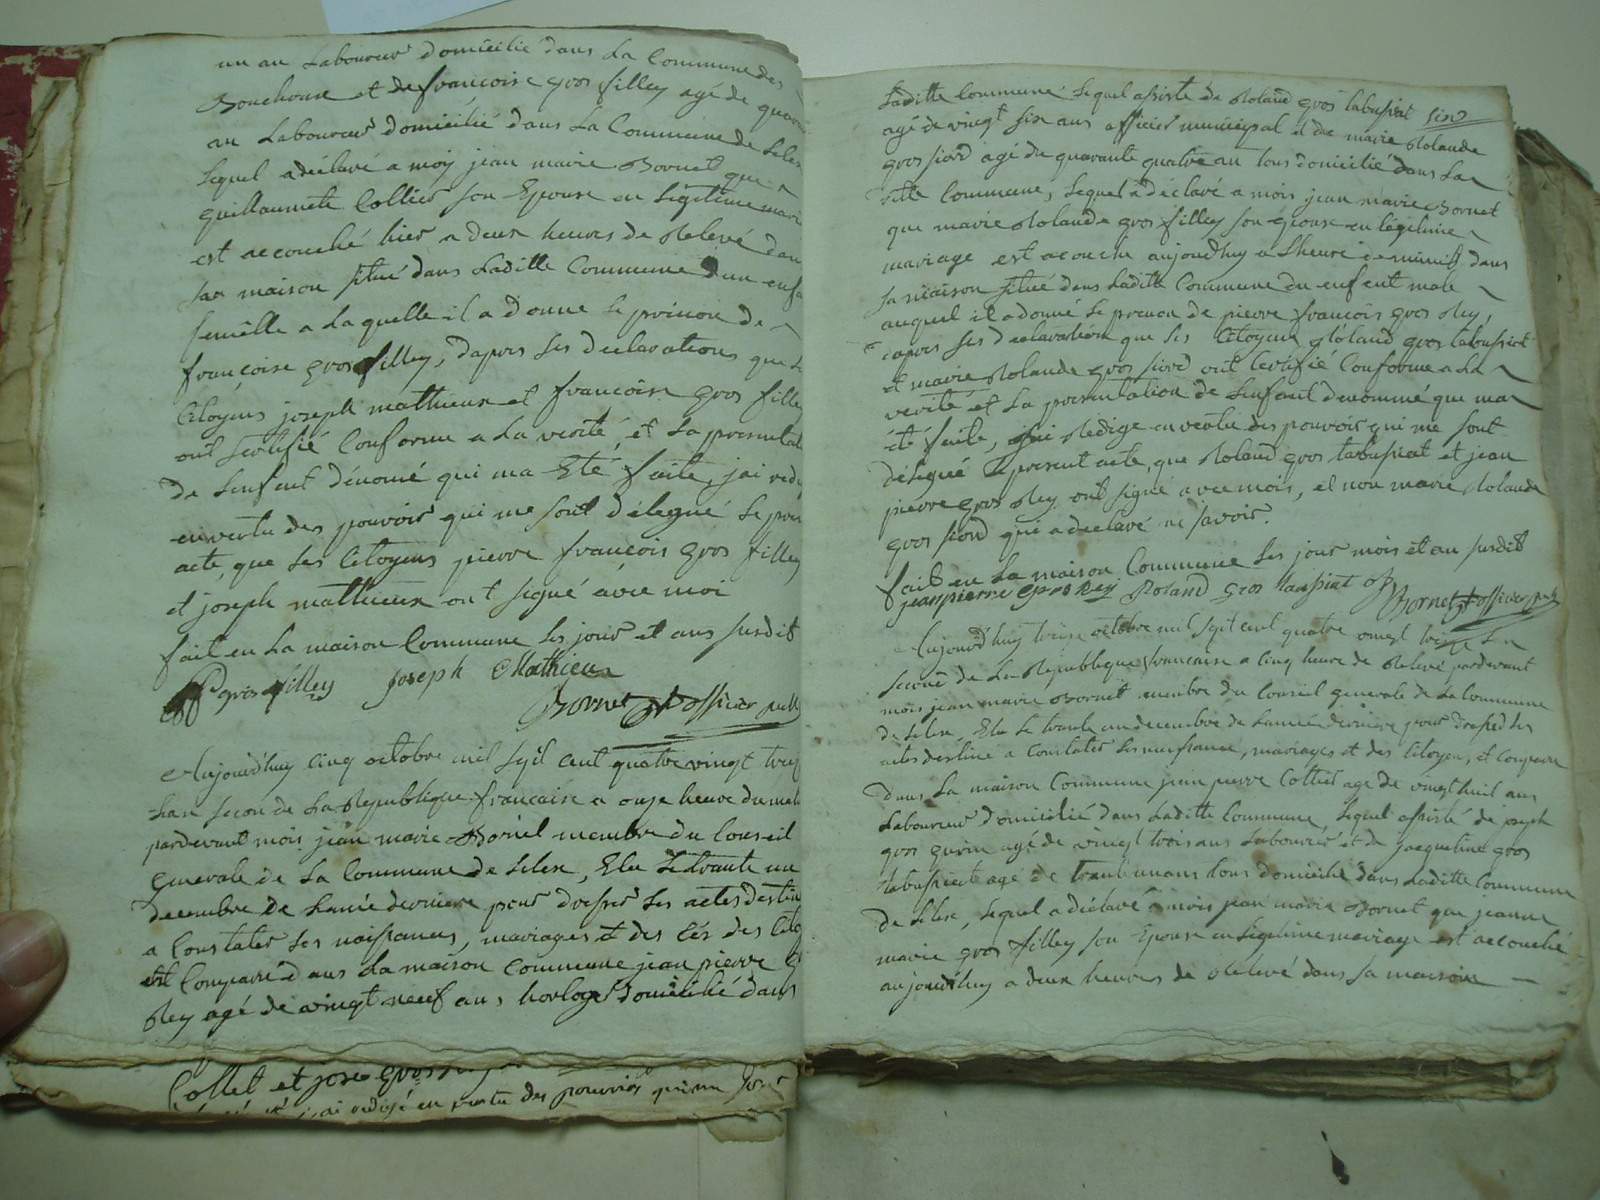 un an Laboureur domicilié dans La Commune des
Bouchoux et de françoise gros filley agé de quar
an Laboureur domicilié dans La Commune de Selex
Lequel a déclaré a moy jean marie Bornet que
guillaumete Collier son Epouse en Légitime mari
est accouché hier a deux heures de Relevé dans
sa maison situé dans Laditte Commune dun enfa
femelle a Laquelle il a donne Le prénom de
françoise gros filley, dapres Les declarations que Le
Citoyens joseph matthieux et francoise gros filley
ont Certifié Conforme a La verité, et La presentat
de Lenfent dénomé qui ma Eté faite, jai redi
en vertu des pouvoir qui me sont délegué Le pres
acte, que Les Citoyens pierre françois gros filley
et joseph matthieux ont signé avec moi
fait en La maison Commune Les jour et ans susdit
gros filley Joseph Mathieux
Bornet officier publ
Aujourd'huy Cinq octobre mil sept cent quatre vingt treiz
Lan second de La Republique francaise a onze heure du mat
pardevant mois jean marie Bornet membre du Conseil
generale de La Commune de Selex, Elu Le trante un
decembre de Lanné derniere pour dresser Les actes destin
a Constater Les naissances, mariages et des Cés des Cito
est Comparu dans La maison Commune jean pierre G
Rey agé de vingt neuf ans horloger domicilié dans
Collet et jose gros
jai redigé en vertu des pouvoirs qui me sont
Laditte Commune Lequel assisté de Roland gros tabussiat
agé de vingt six ans officier municipal et de marie Rolande
gros siord agé de quarante quatre an tous domicilié dans La
ditte Commune, Lequel a déclaré a mois jean marie Bornet
que marie Rolande gros filley son Epouse en Légitime
mariage est acouche aujourdhuy a Lheure de minuit dans
sa maison situé dans Laditte Commune du enfent male
auquel il a donné Le prenom de pierre françois gros Rey,
dapres Les declaration que Les Citoyens Roland gros tabussiat
et marie Rolande gros siord ont Certifié Conforme a La
verité et La presentation de Lenfant denommé que ma
été faite, jai Redige en vertu des pouvoir qui me sont
délegué Le present acte, que Roland gros tabussiat et jean
pierre gros Rey ont signé avec mois, et non marie Rolande
gros siord qui a declaré ne savoir.
fait en La maison Commune Les jour mois et an susdit
jean pierre gros Rey Roland gros tabussiat Bornet officier publ
Aujourd'huy treize octobre mil sept cent quatre vingt treize Lan
second de La Republique francaise a Cinq heure de Relevé pardevant
mois jean marie Bornet membre du Conseil generale de La Commune
de Selex, Elu Le trante un decembre de Lanné derniere pour dresser Les
actes destiné a Constater Les naissance, mariages et des Citoyens, est Comparu
dans La maison Commune jean pierre Collier agé de vingt huit ans
Laboureur domicilié dans Laditte Commune, Lequel assisté de joseph
gros gurin agé de vingt trois ans Laboureur et de jacqueline gros
tabussiat agé de trante un ans tous domicilié dans Laditte Commune
de Selex, Lequel a déclaré a mois jean marie Bornet que jeanne
marie gros filley son Epouse en Légitime mariage est accouché
aujourdhuy a deux heures de Relevé dans sa maison